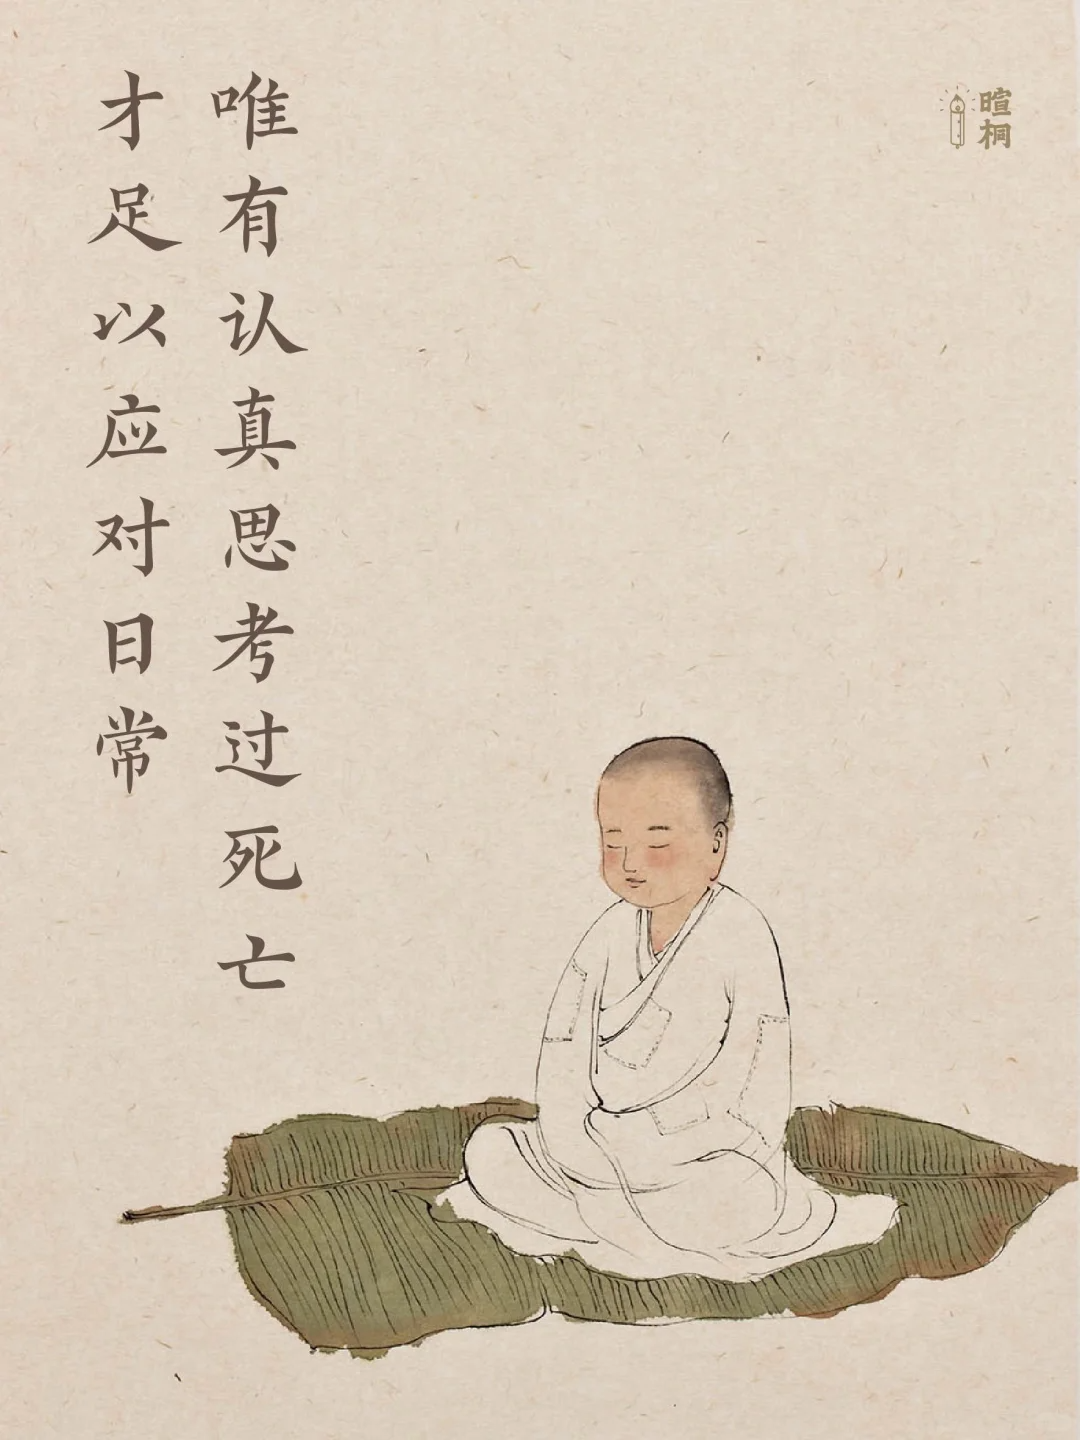 唯有认真思考过死亡
才足以应对日常
暄桐